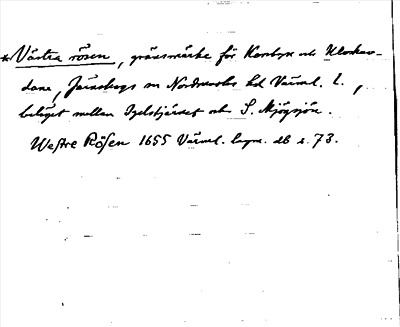 *Västra rösen, gränsmärke för Karbyn och Klockar-
dane, Färnebegs sn Nordmarks hd Värml. l. ,
beläget mellan Igeltjärnet och S. Mjögsjön.
Westre Rösen 1655 Värml. lagm. db s. 73.